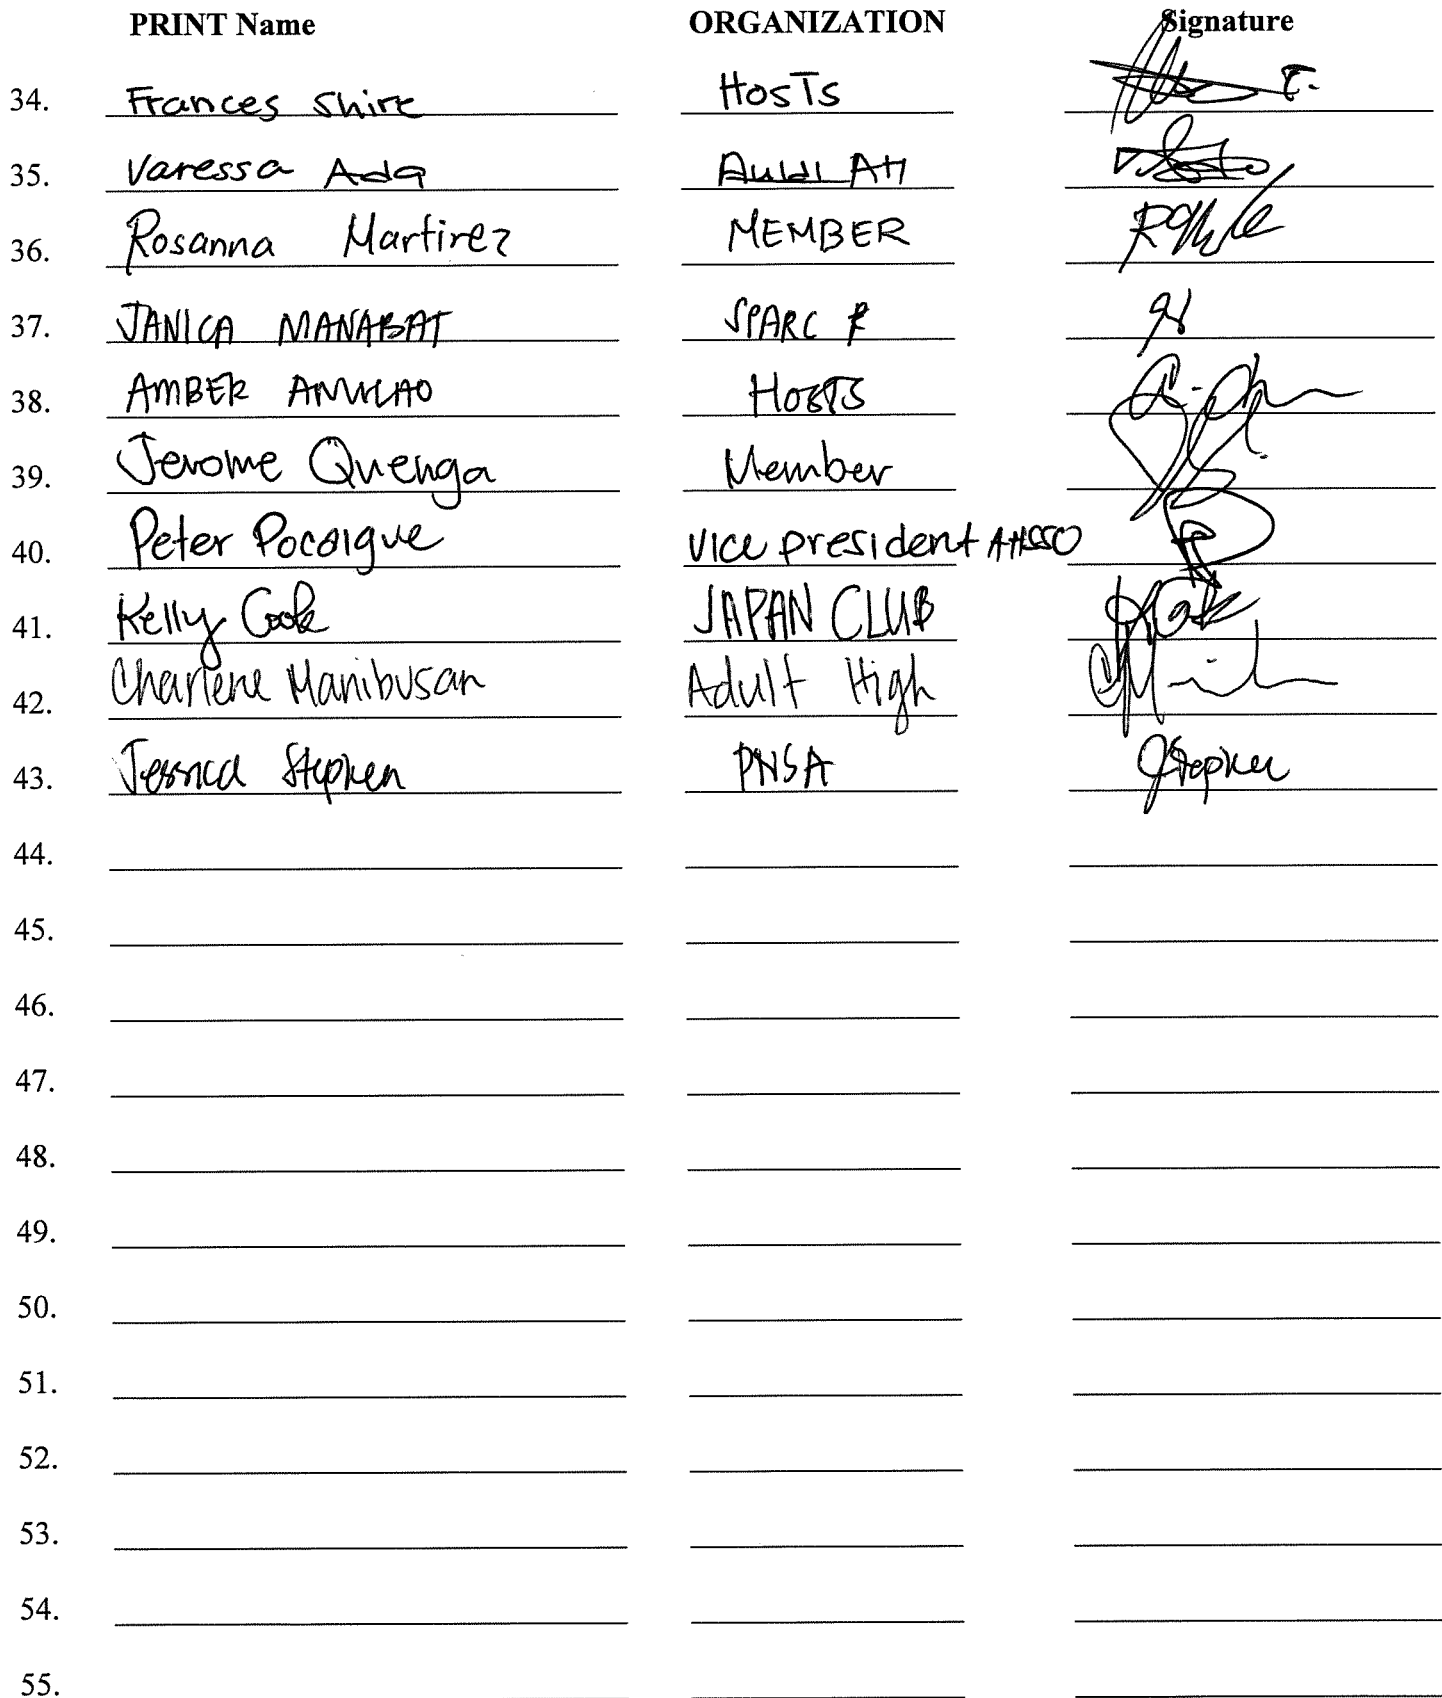 PRINT Name ORGANIZATION Signature
34. Frances Shire HosTs
35. Varessa Ada AH
36. Rosanna Martirez MEMBER
37. JANICA MANABAT SPARC
38. AMBER ANULAO HOSTS
39. Jerome Quenga Member
40. Peter Pocaigue Vice president AHSSO
41. Kelly Cook JAPAN CLUB
42. Charlene Manibusan Adult High
43. Jessica Stephen PNSA JStephen
44.
45.
46.
47.
48.
49.
50.
51.
52.
53.
54.
55.